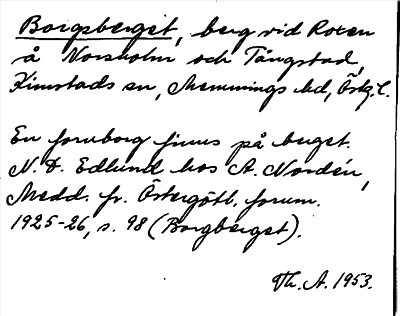 Borgsberget, berg vid Roxen
å Norsholm och Tångstad,
Kimstads sn, Memmings hd, Östg. l.
En fornborg finns på berget.
N. D. Edlund hos A. Nordén,
Medd. fr. Östergötl. fornm.
1925-26, s. 98 (Borgberget).
Th. A. 1953.